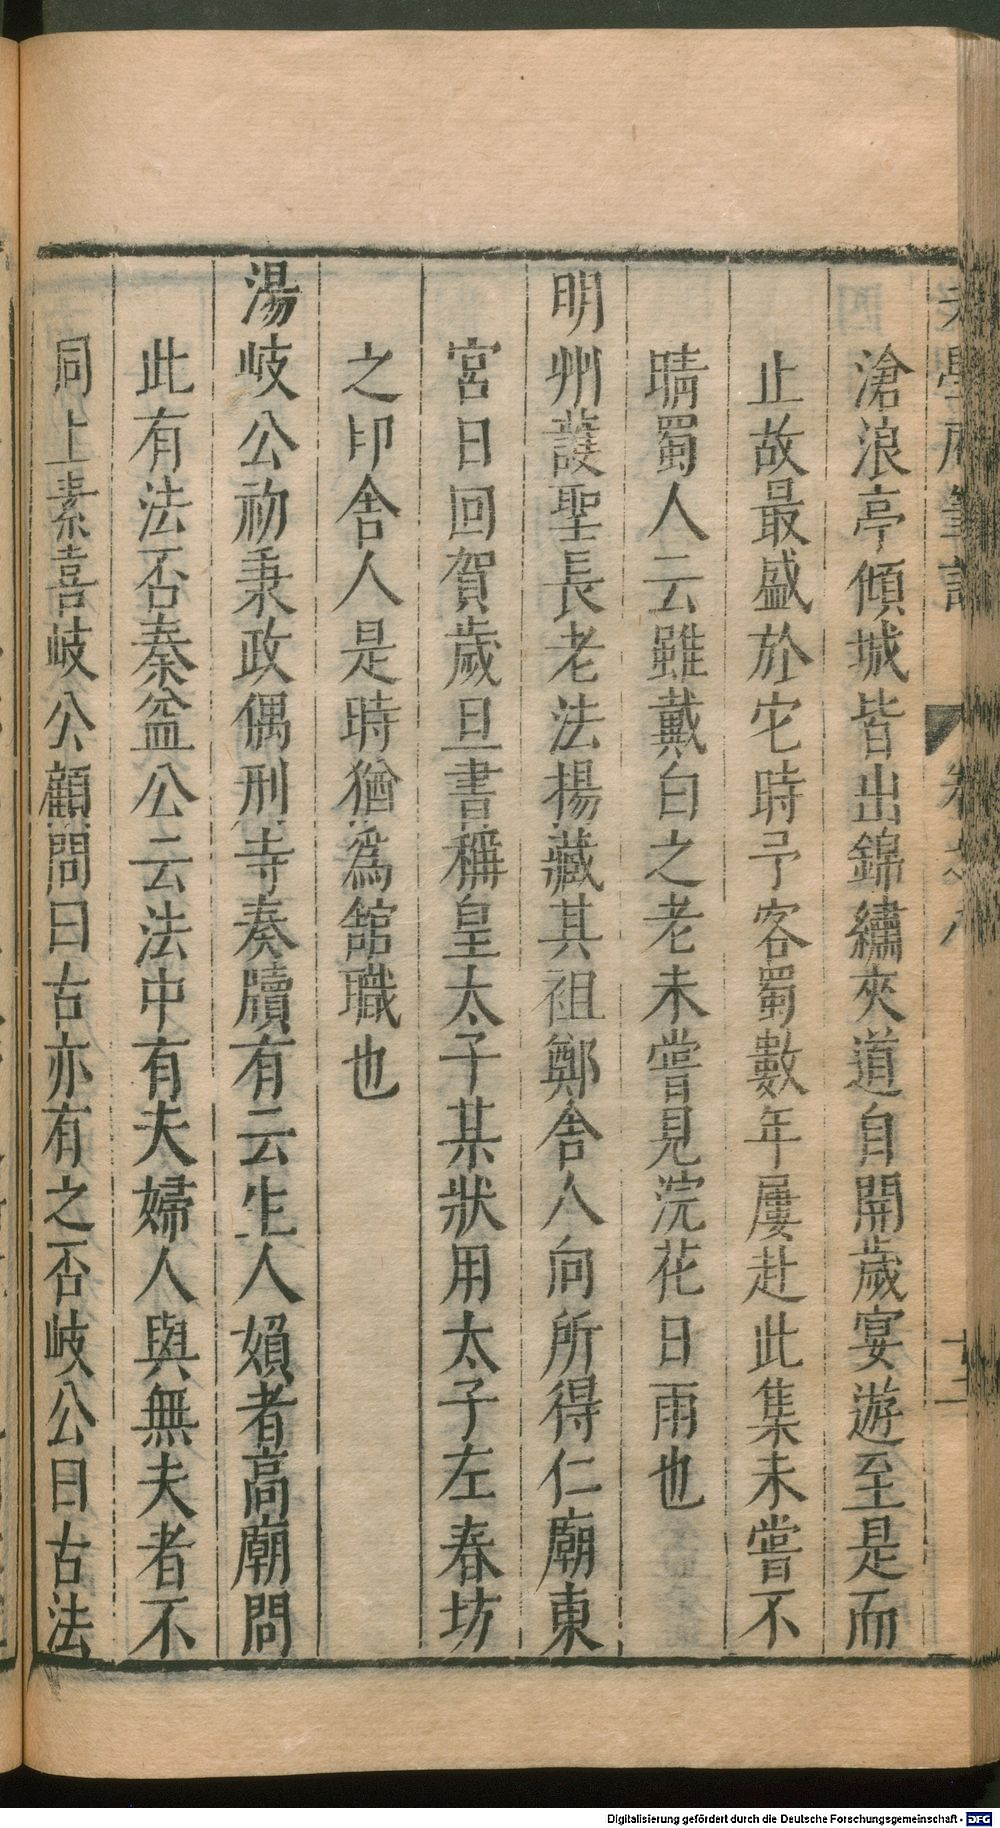 老學庵筆記 卷之八
滄浪亭傾城皆出錦繡夾道自開歲宴遊至是而
止故最盛於它時予客蜀數年屢赴此集未嘗不
晴蜀人云雖戴白之老未嘗見浣花日雨也
明州護聖長老法揚藏其祖鄭舍人向所得仁廟東
宮日回賀歲旦書稱皇太子某狀用太子左春坊
之印舍人是時猶為舘職也
湯岐公初秉政偶刑寺奏牘有云生人婦者高廟問
此有法否秦益公云法中有夫婦人與無夫者不
同上素喜岐公顧問曰古亦有之否岐公曰古法
Digitalisierung gefördert durch die Deutsche Forschungsgemeinschaft - DFG